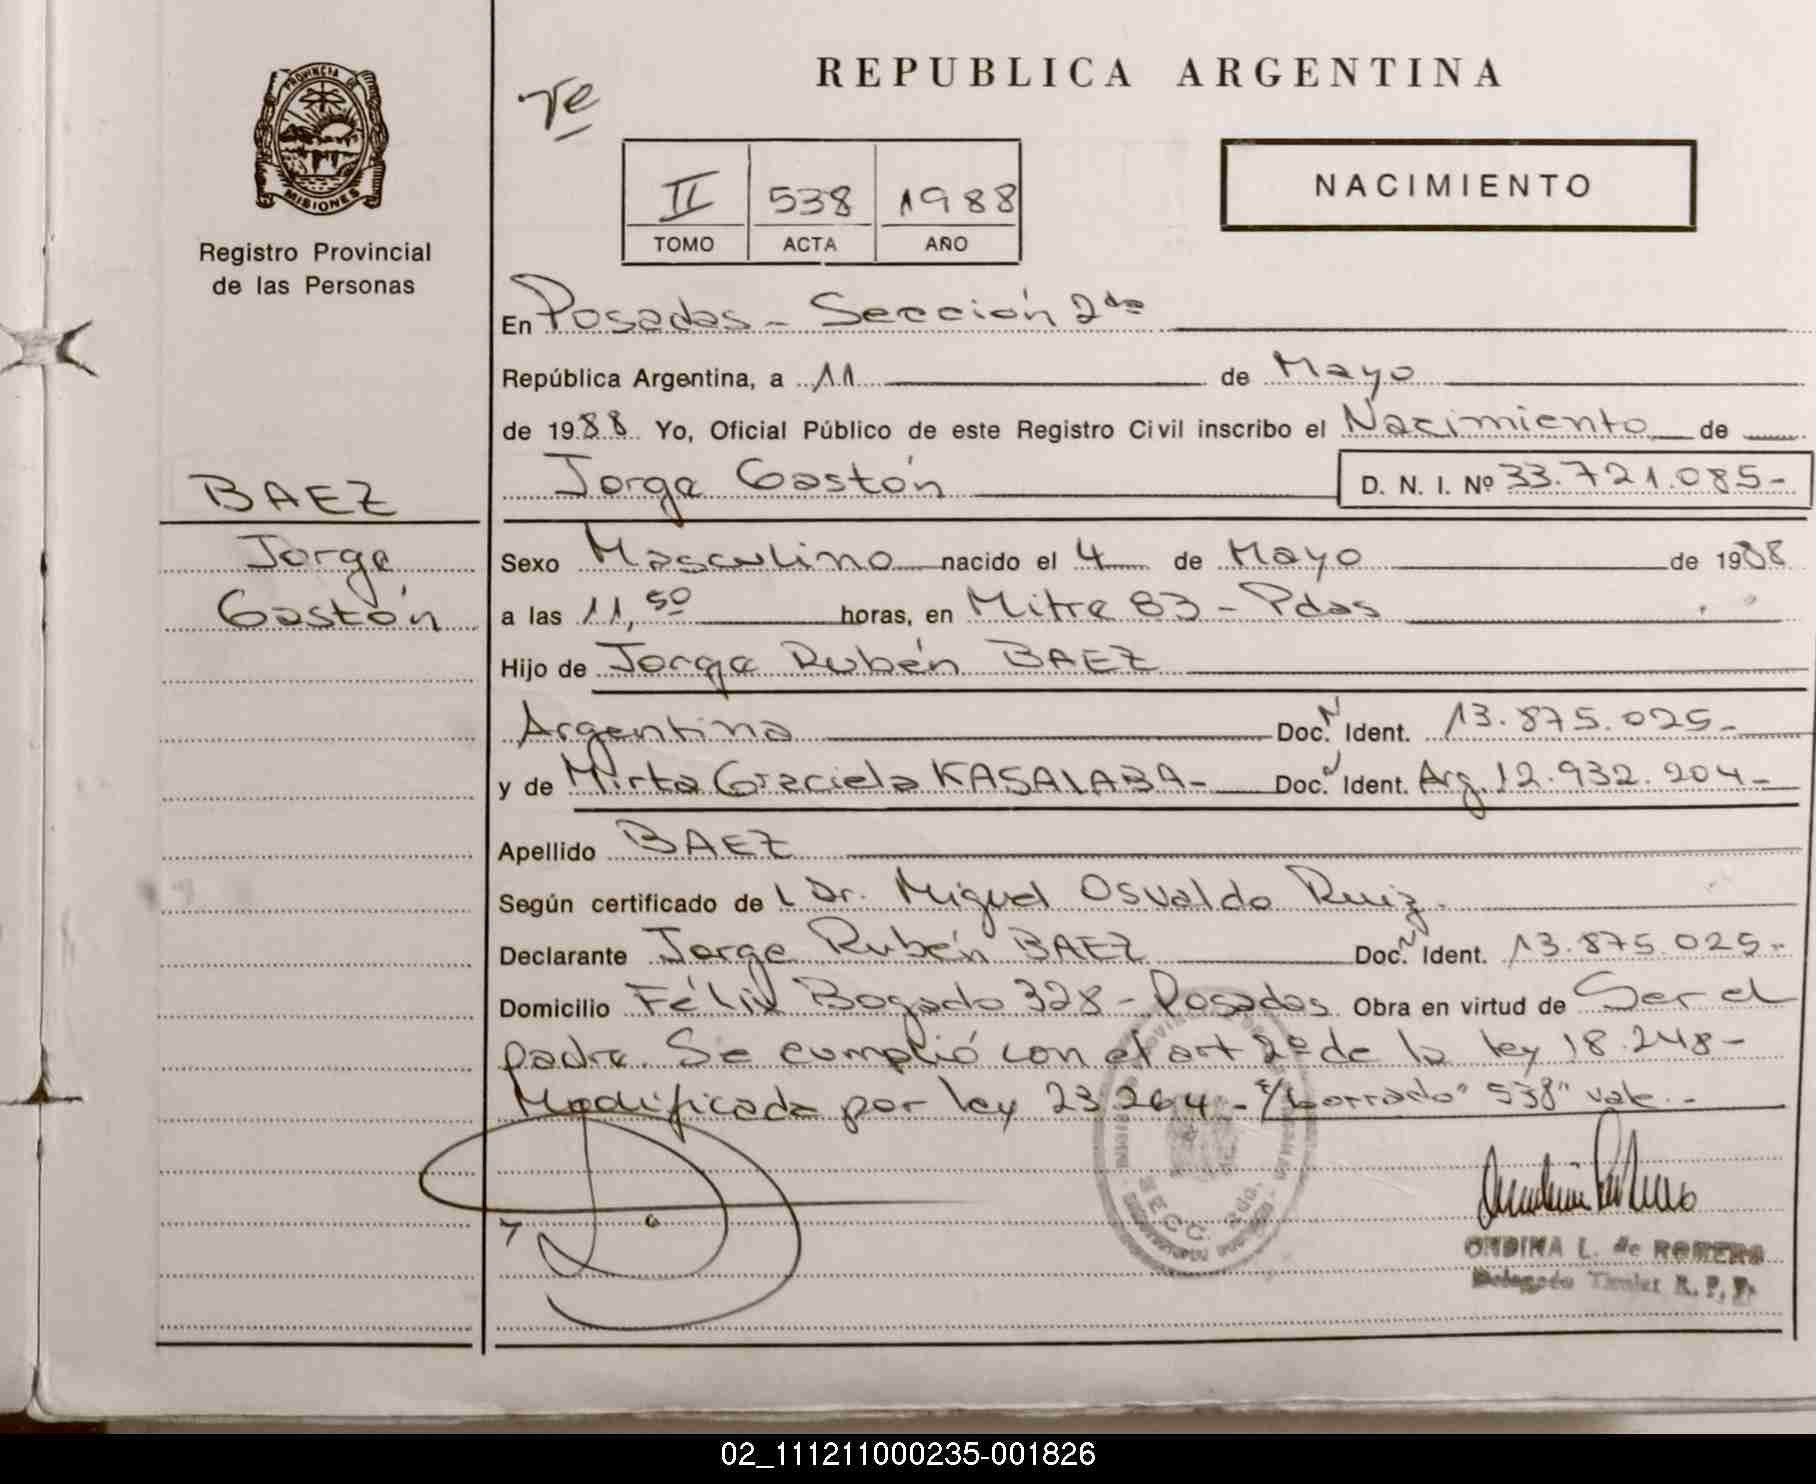 REPUBLICA ARGENTINA
PROVINCIA DE
MISIONES
Registro Provincial
de las Personas
II 538 1988
TOMO ACTA AÑO
NACIMIENTO
En Posadas - Sección 2da
República Argentina, a 11 de Mayo
de 1988 Yo, Oficial Público de este Registro Civil inscribo el Nacimiento de
Jorge Gastón D. N. I. Nº 33.721.085-
BAEZ
Jorge
Gastón
Sexo Masculino nacido el 4 de Mayo de 1988
a las 11,50 horas, en Mitre 83 - Pdas
Hijo de Jorge Rubén BAEZ
Argentina Doc. Ident. 13.875.025-
y de Mirta Graciela KASALABA- Doc. Ident. Arg. 12.932.204-
Apellido BAEZ
Según certificado de Dr. Miguel Osvaldo Ruiz.
Declarante Jorge Rubén BAEZ Doc. Ident. 13.875.025-
Domicilio Félix Bogado 328 - Posadas Obra en virtud de Ser el
padre. Se cumplió con el art 2º de la ley 18.248-
Modificada por ley 23264 - s/borrado "538" vale.-
SECC. 2da.
ONDINA L. de ROMERO
Delegado Titular R. P. P.
02_111211000235-001826